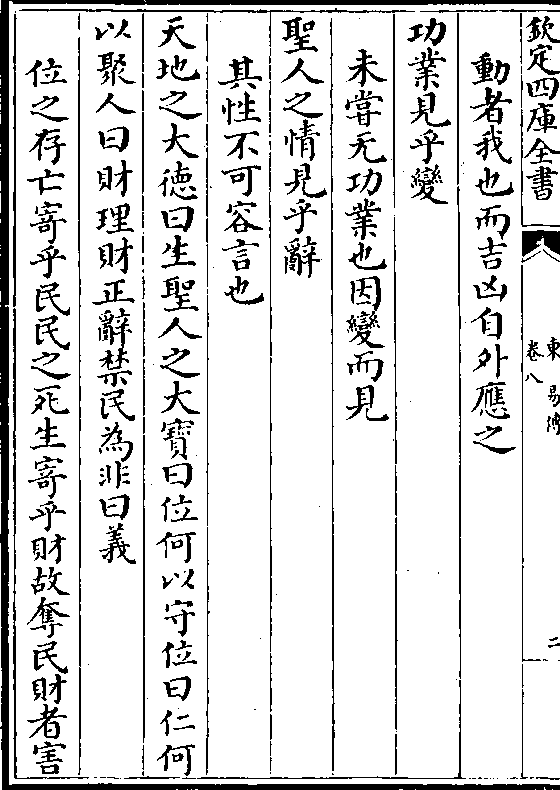 欽定四庫全書
東 易傳
卷八
二
動者我也而吉凶自外應之
功業見乎變
未嘗无功業也因變而見
聖人之情見乎辭
其性不可容言也
天地之大德曰生聖人之大寶曰位何以守位曰仁何
以聚人曰財理財正辭禁民為非曰義
位之存亡寄乎民民之死生寄乎財故奪民財者害